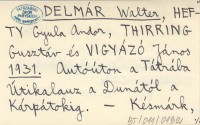 DELMÁR Walter, HEF-
TY Gyula Andor, THIRRING
Gusztáv és VIGYÁZÓ János
1931. Autóúton a Tátrába
Útikalauz a Dunától a
Kárpátokig. — Késmárk,